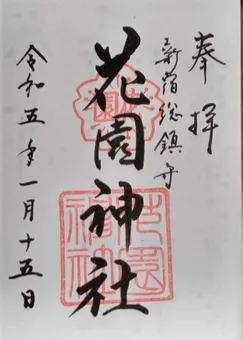 奉拝
新宿総鎮守
花園神社
令和五年一月十五日